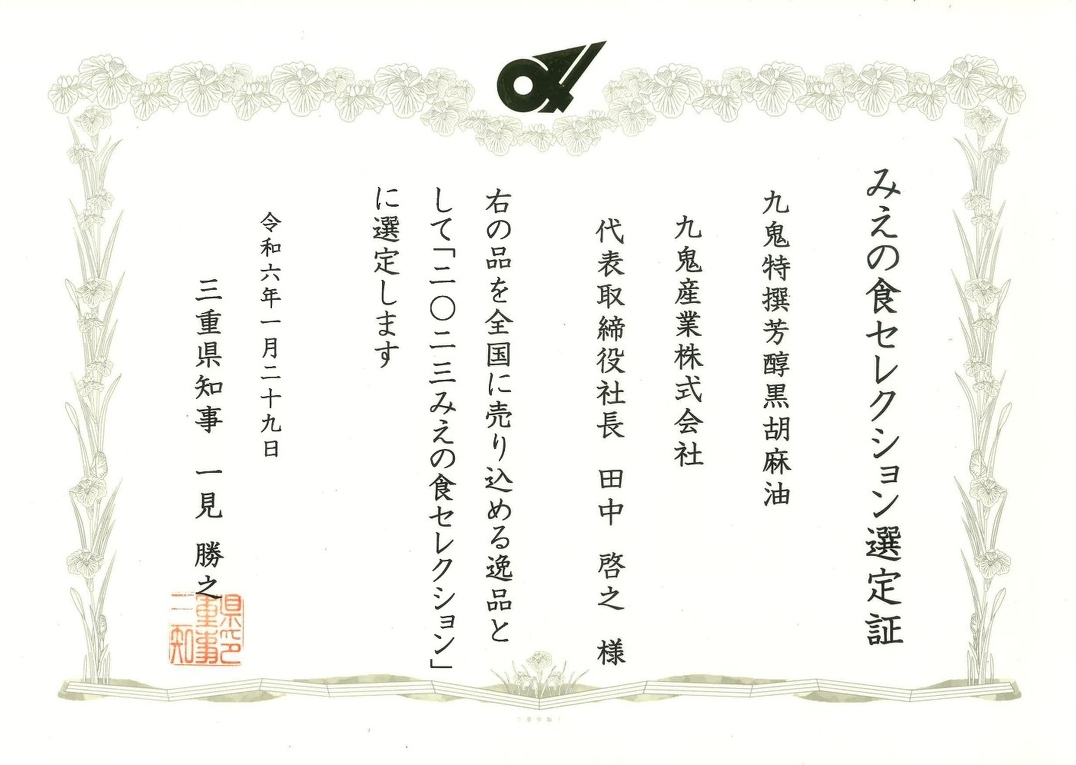 みえの食セレクション選定証
九鬼特撰芳醇黒胡麻油
九鬼産業株式会社
代表取締役社長　田中　啓之　様
右の品を全国に売り込める逸品と
して「二〇二三みえの食セレクション」
に選定します
令和六年一月二十九日
三重県知事　一見　勝之